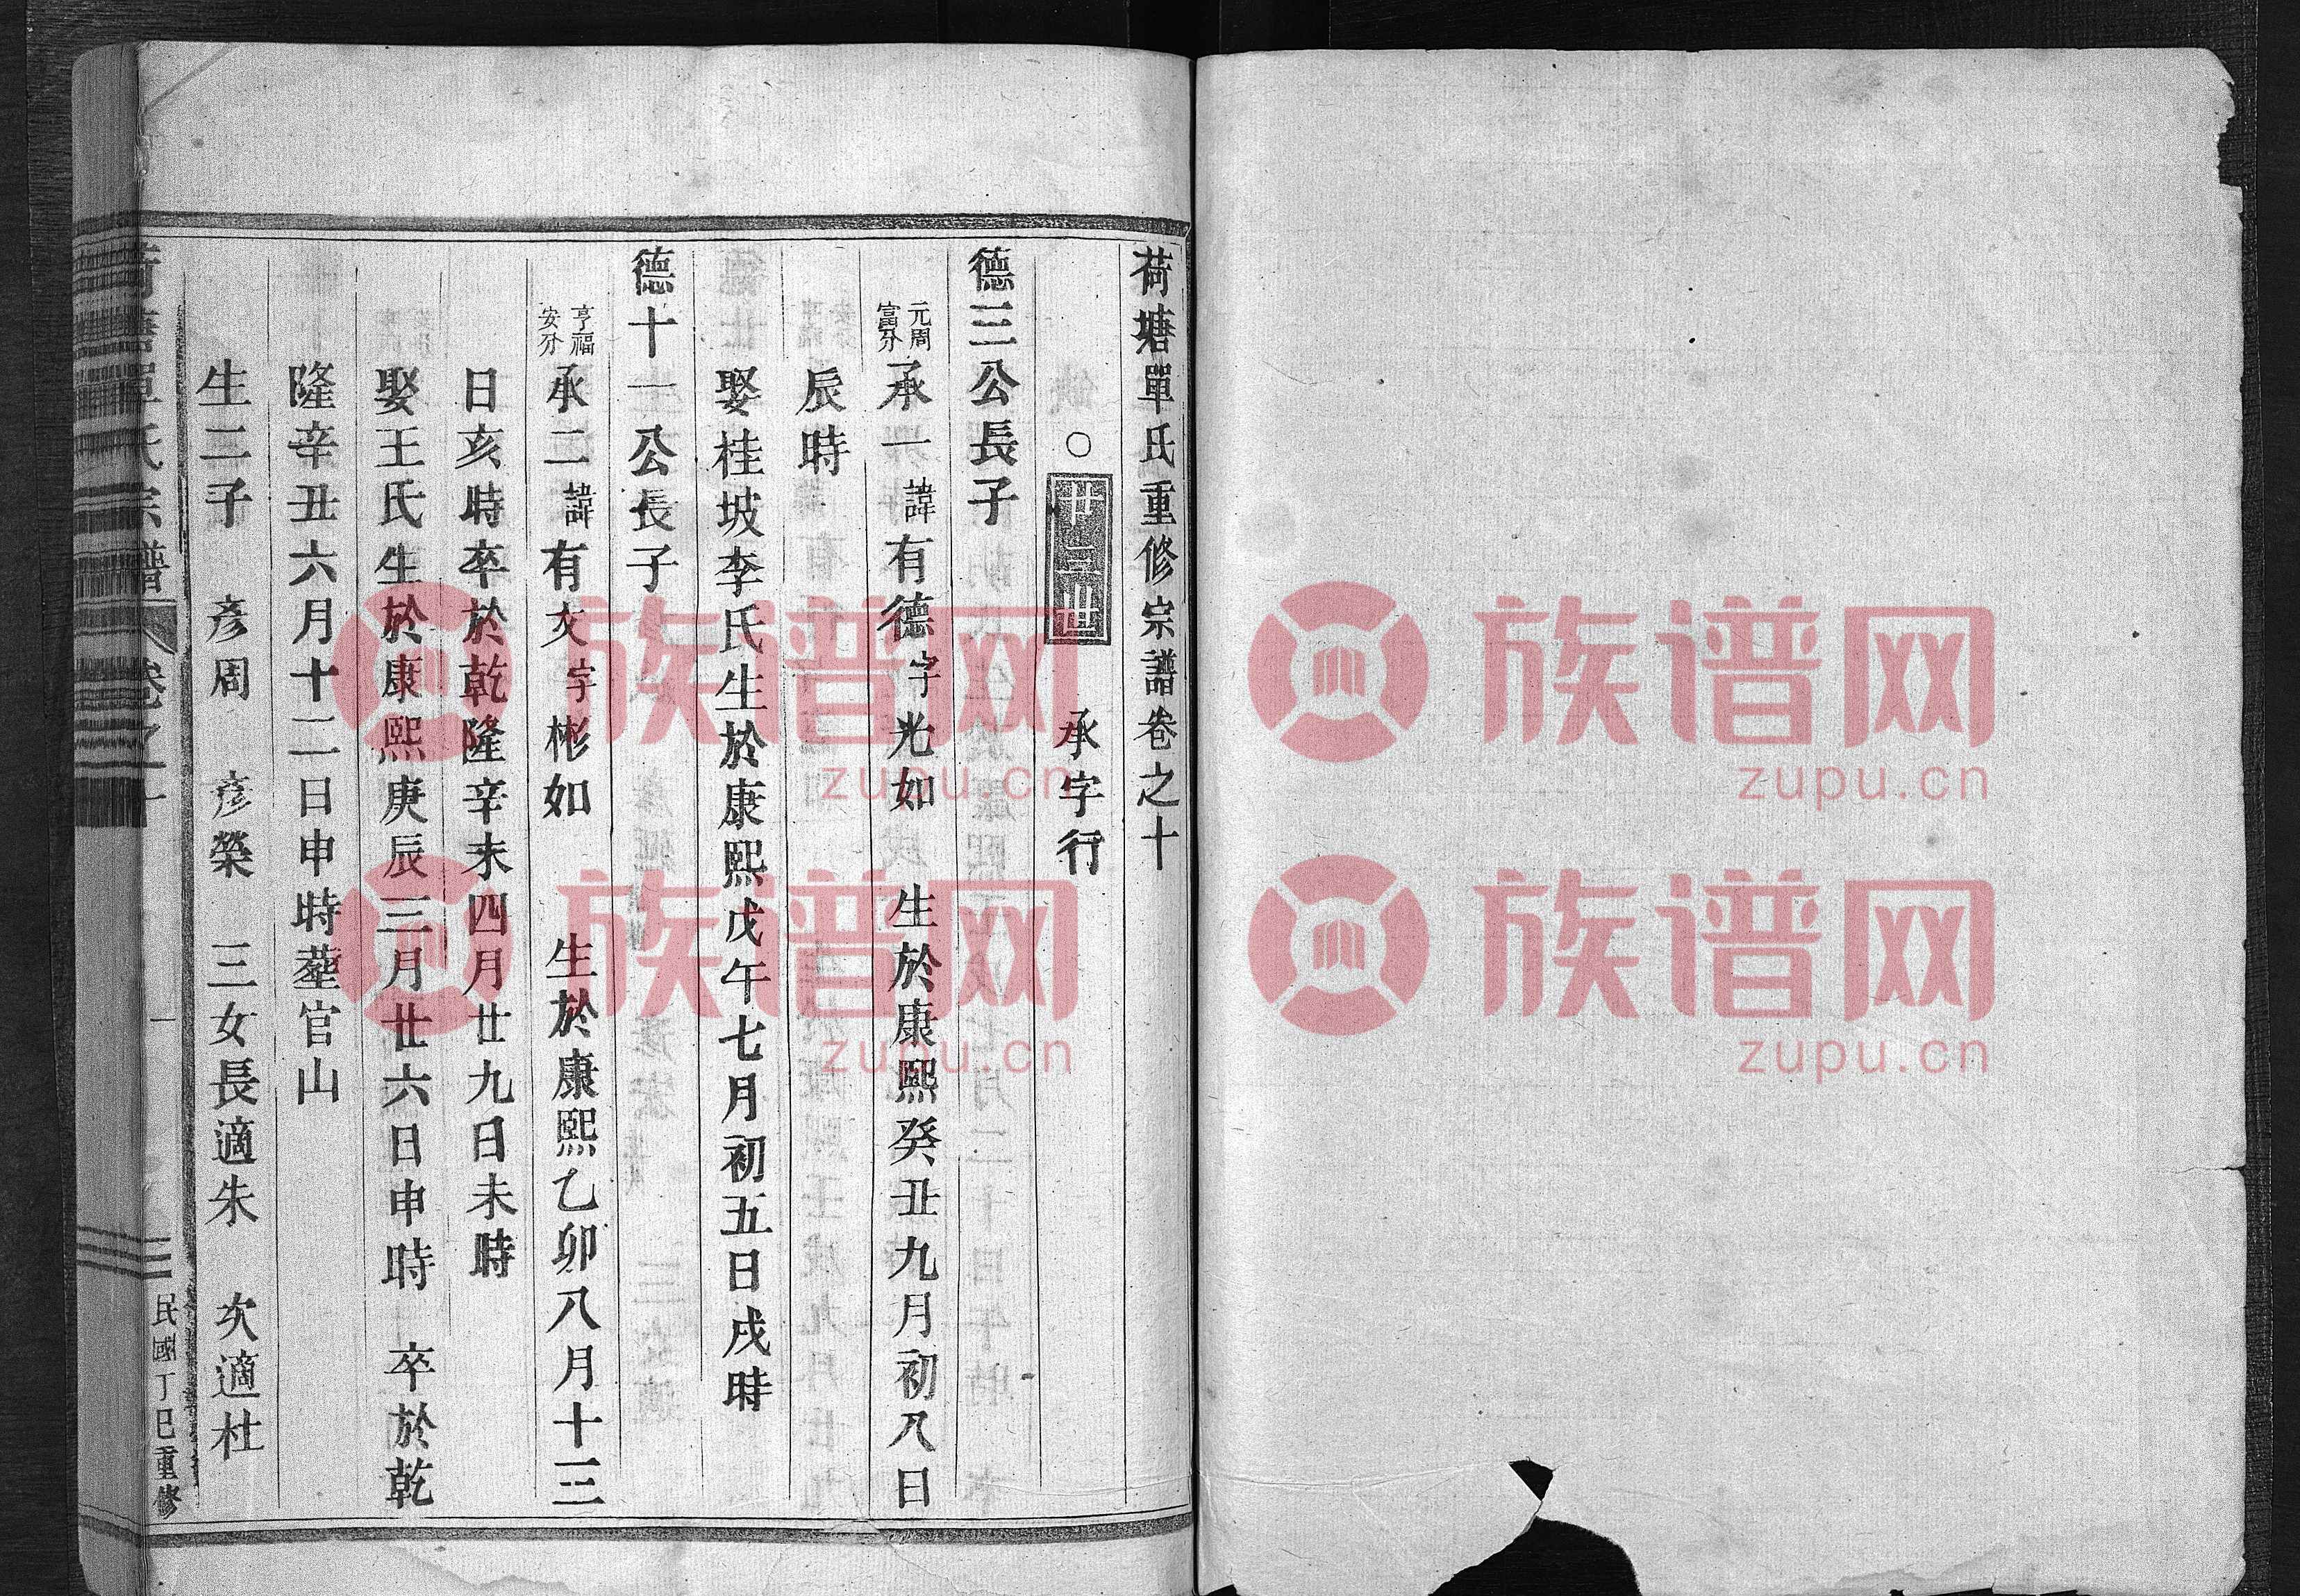 荷塘單氏重修宗譜卷之十
○廿二世 承字行
德三公長子
元周富分 承一諱有德字光如 生於康熙癸丑九月初八日
辰時
娶桂坡李氏生於康熙戊午七月初五日戌時
德十一公長子
亨福安分 承二諱有文字彬如 生於康熙乙卯八月十三
日亥時卒於乾隆辛未四月廿九日未時
娶王氏生於康熙庚辰三月廿六日申時 卒於乾
隆辛丑六月十二日申時葬官山
生二子 彥周 彥榮 三女長適朱 次適杜
荷塘單氏宗譜 卷之十 一 民國丁巳重修
族谱网
zupu.cn
族谱网
zupu.cn
族谱网
zupu.cn
族谱网
zupu.cn